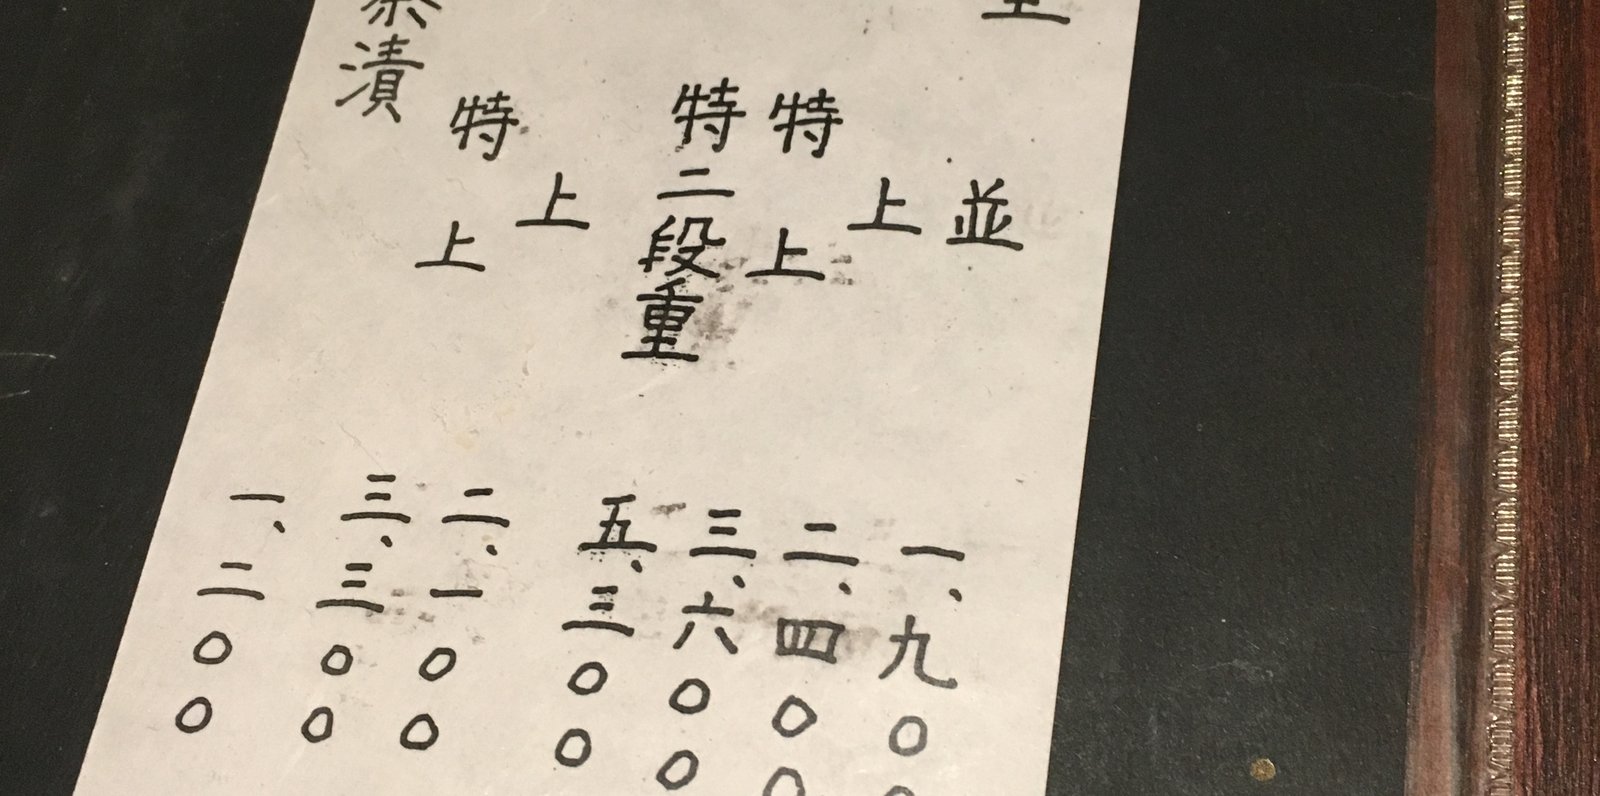 並 一、九〇〇
上 二、四〇〇
特上 三、六〇〇
特二段重 五、三〇〇
上 二、一〇〇
特上 三、三〇〇
茶漬 一、二〇〇